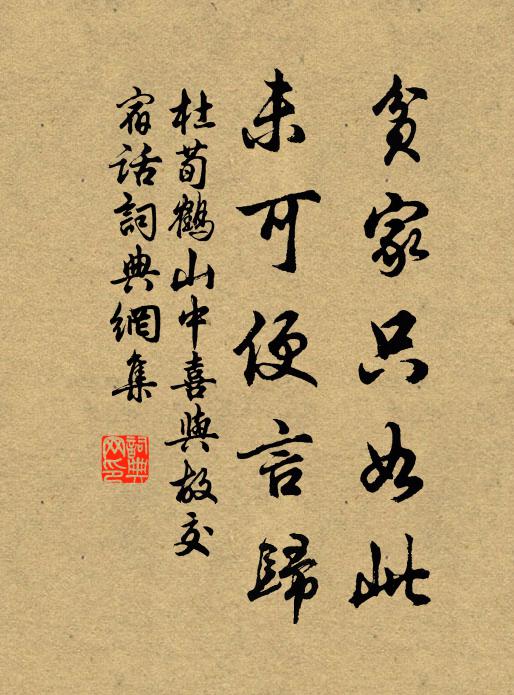 貧家只如此
未可便言歸
杜荀鶴山中喜與故交
宿話詞典網集
詞典网印